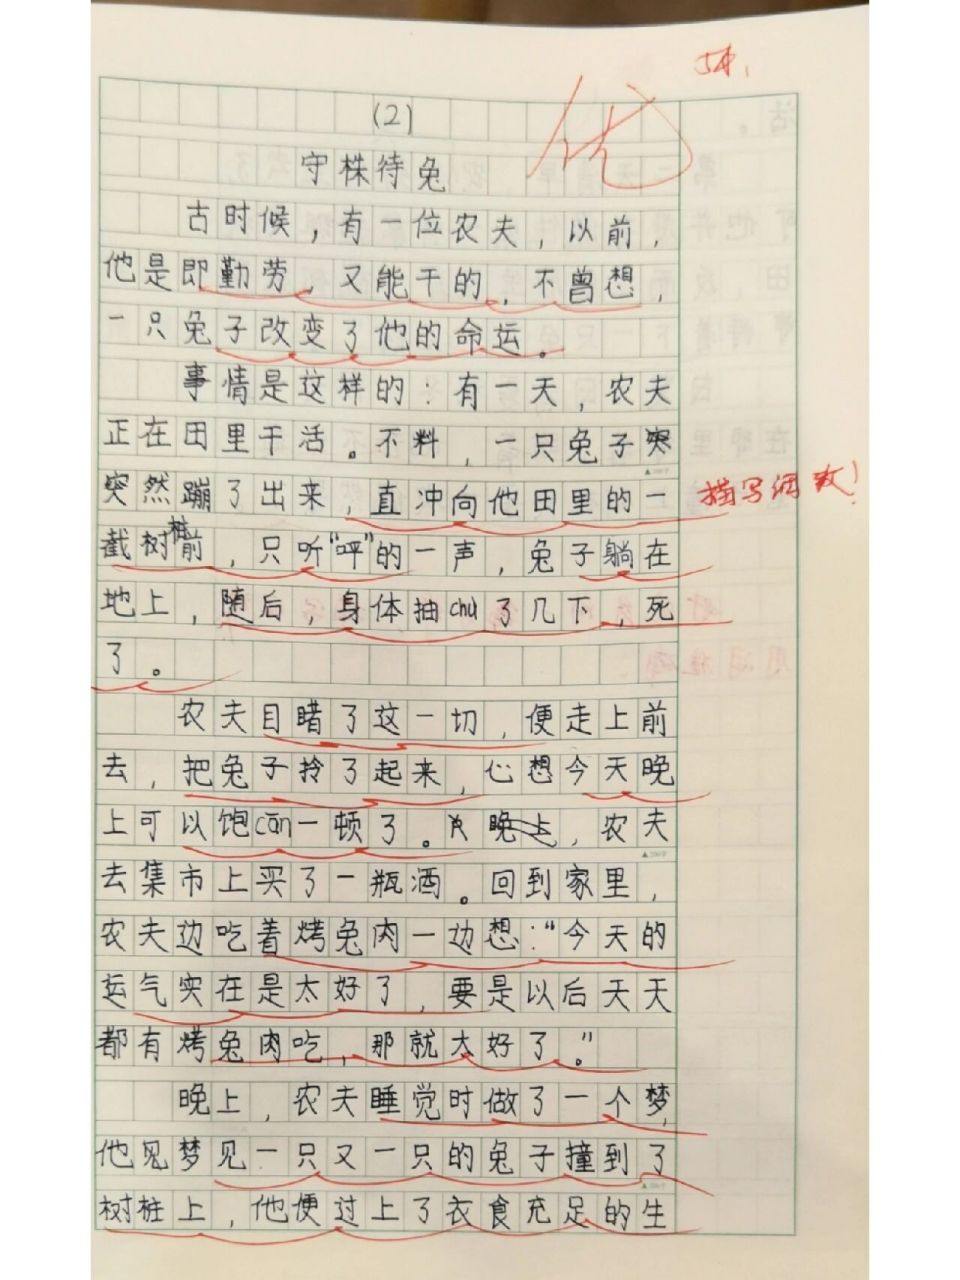 54.
优
(2)
守株待兔
古时候，有一位农夫，以前，
他是即勤劳，又能干的，不曾想，
一只兔子改变了他的命运。
事情是这样的：有一天，农夫
正在田里干活。不料，一只兔子突
突然蹦了出来，直冲向他田里的一
描写细致！
截树桩前，只听“呯”的一声，兔子躺在
地上，随后，身体抽chù了几下，死
了。
农夫目睹了这一切，便走上前
去，把兔子拎了起来，心想今天晚
上可以饱cān一顿了。晚上，农夫
去集市上买了一瓶酒。回到家里，
农夫边吃着烤兔肉一边想：“今天的
运气实在是太好了，要是以后天天
都有烤兔肉吃，那就太好了。”
晚上，农夫睡觉时做了一个梦，
他见梦见一只又一只的兔子撞到了
树桩上，他便过上了衣食充足的生